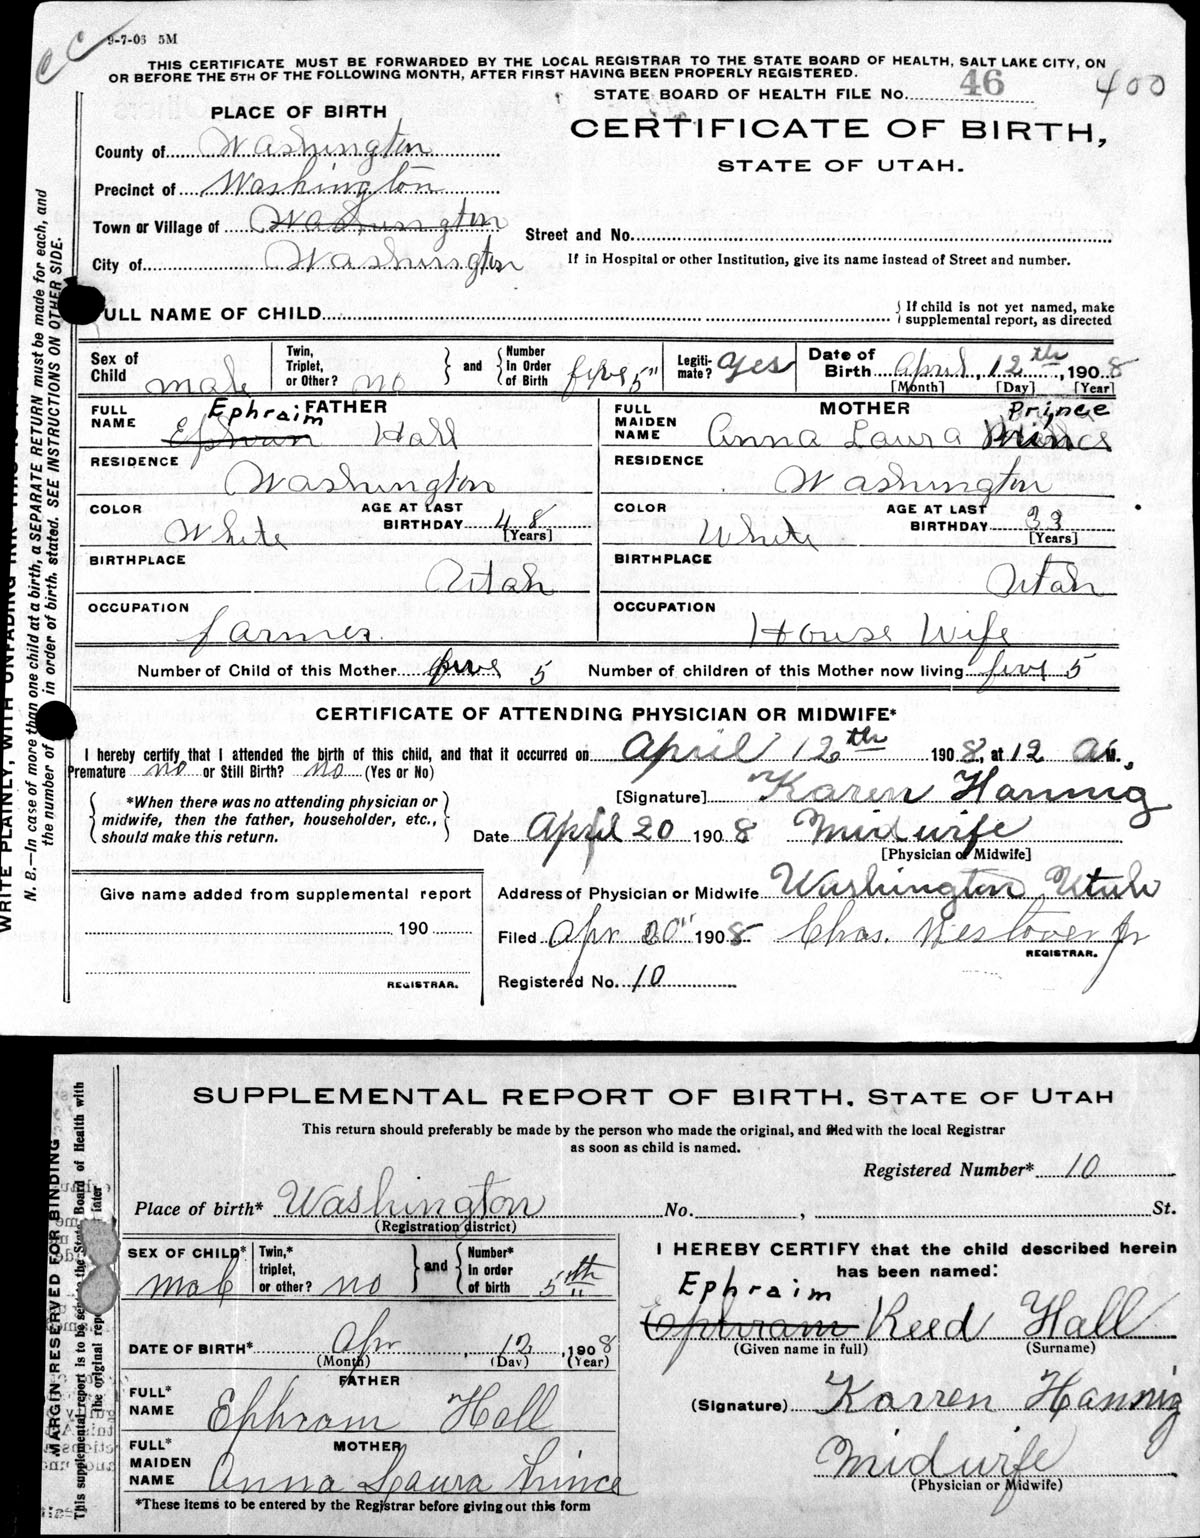 9-7-03 5M
THIS CERTIFICATE MUST BE FORWARDED BY THE LOCAL REGISTRAR TO THE STATE BOARD OF HEALTH, SALT LAKE CITY, ON
OR BEFORE THE 5TH OF THE FOLLOWING MONTH, AFTER FIRST HAVING BEEN PROPERLY REGISTERED.
STATE BOARD OF HEALTH FILE No. 46 400
PLACE OF BIRTH
CERTIFICATE OF BIRTH,
STATE OF UTAH.
County of Washington
Precinct of Washington
Town or Village of Washington
Street and No.
City of Washington
If in Hospital or other Institution, give its name instead of Street and number.
FULL NAME OF CHILD
If child is not yet named, make
supplemental report, as directed
Sex of Child male
Twin, Triplet, or Other? no
and Number In Order of Birth five 5"
Legiti-mate? yes
Date of Birth April 12th, 1908
[Month] [Day] [Year]
FULL NAME FATHER Ephraim Hall
FULL MAIDEN NAME MOTHER Anna Laura Prince Prince
RESIDENCE Washington
RESIDENCE Washington
COLOR White AGE AT LAST BIRTHDAY 48 [Years]
COLOR White AGE AT LAST BIRTHDAY 33 [Years]
BIRTHPLACE Utah
BIRTHPLACE Utah
OCCUPATION farmer
OCCUPATION House Wife
Number of Child of this Mother five 5 Number of children of this Mother now living five 5
CERTIFICATE OF ATTENDING PHYSICIAN OR MIDWIFE*
I hereby certify that I attended the birth of this child, and that it occurred on April 12th 1908, at 12 a M.,
Premature no or Still Birth? no (Yes or No)
*When there was no attending physician or
midwife, then the father, householder, etc.,
should make this return.
[Signature] Karen Hannig
Date April 20 1908 Midwife
[Physician or Midwife]
Give name added from supplemental report
190
REGISTRAR.
Address of Physician or Midwife Washington Utah
Filed Apr 20" 1908 Chas. Westover Jr
REGISTRAR.
Registered No. 10
N. B.—In case of more than one child at a birth, a SEPARATE RETURN must be made for each, and
the number of in order of birth, stated. SEE INSTRUCTIONS ON OTHER SIDE.
WRITE PLAINLY, WITH UNFADING INK
SUPPLEMENTAL REPORT OF BIRTH, STATE OF UTAH
This return should preferably be made by the person who made the original, and filed with the local Registrar
as soon as child is named.
Registered Number* 10
Place of birth* Washington No. , St.
(Registration district)
SEX OF CHILD* male
Twin,* triplet, or other? no
and Number* In order of birth 5th
DATE OF BIRTH* Apr 12, 1908
(Month) (Day) (Year)
FATHER
FULL* NAME Ephram Hall
MOTHER
FULL* MAIDEN NAME Anna Laura Prince
*These items to be entered by the Registrar before giving out this form
I HEREBY CERTIFY that the child described herein
has been named:
Ephraim
Ephram Reed Hall
(Given name in full) (Surname)
(Signature) Karren Hannig
Midwife
(Physician or Midwife)
MARGIN RESERVED FOR BINDING
This supplemental report is to be Board of Health with
the original later